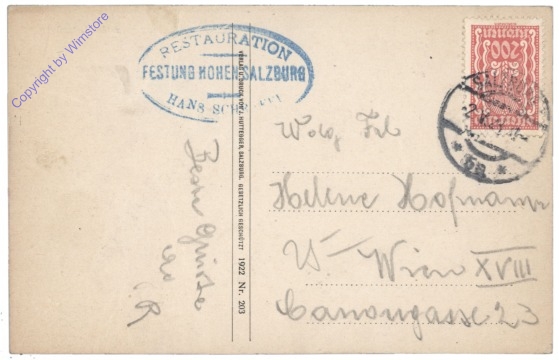 Copyright by Wimstore
RESTAURATION
FESTUNG HOHENSALZBURG
HANS
VERLAG U. DRUCK VON J. HUTTEGGER, SALZBURG. GESETZLICH GESCHÜTZT 1922 Nr. 203
200
Beste Grüsse
R
Helene Hofmann
Wien XVIII
Canongasse 23